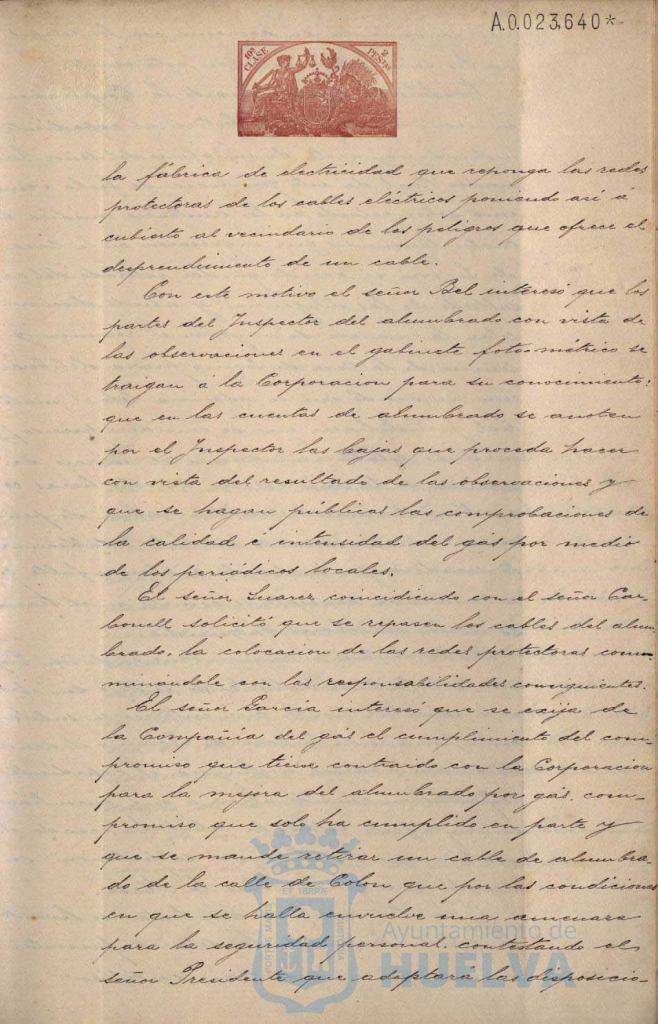 A.0.023,640*
10ª CLASE
2 PESTAS
la fábrica de electricidad que reponga las redes
protectoras de los cables eléctricos poniendo así á
cubierto al vecindario de los peligros que ofrece el
desprendimiento de un cable.
Con este motivo el señor Bel interesó que los
partes del Inspector del alumbrado con vista de
las observaciones en el gabinete foto-métrico se
traigan á la Corporacion para su conocimiento:
que en las cuentas de alumbrado se anoten
por el Inspector las bajas que proceda hacer
con vista del resultado de las observaciones y
que se hagan públicas las comprobaciones de
la calidad é intensidad del gás por medio
de los periódicos locales.
El señor Suarez coincidiendo con el señor Car-
bonell solicitó que se repasen los cables del alum-
brado, la colocacion de las redes protectoras con-
minándole con las responsabilidades consiguientes.
El señor Garcia interesó que se exija de
la Compañia del gás el cumplimiento del com-
promiso que tiene contraido con la Corporacion
para la mejora del alumbrado por gás, com-
promiso que solo ha cumplido en parte y
que se mande retirar un cable de alumbra-
do de la calle de Colon que por las condiciones
en que se halla envuelve una amenaza
para la seguridad personal, contestando el
señor Presidente que adoptará las disposicio-
Ayuntamiento de
HUELVA